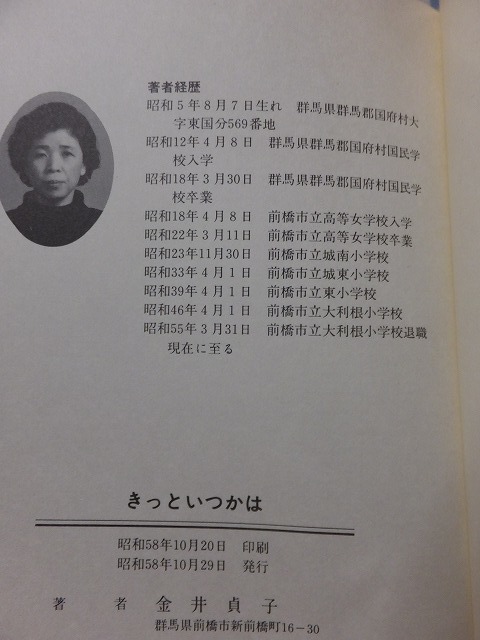 著者経歴
昭和5年8月7日生れ 群馬県群馬郡国府村大
字東国分569番地
昭和12年4月8日 群馬県群馬郡国府村国民学
校入学
昭和18年3月30日 群馬県群馬郡国府村国民学
校卒業
昭和18年4月8日 前橋市立高等女学校入学
昭和22年3月11日 前橋市立高等女学校卒業
昭和23年11月30日 前橋市立城南小学校
昭和33年4月1日 前橋市立城東小学校
昭和39年4月1日 前橋市立東小学校
昭和46年4月1日 前橋市立大利根小学校
昭和55年3月31日 前橋市立大利根小学校退職
現在に至る
きっといつかは
昭和58年10月20日 印刷
昭和58年10月29日 発行
著者 金井貞子
群馬県前橋市新前橋町16-30